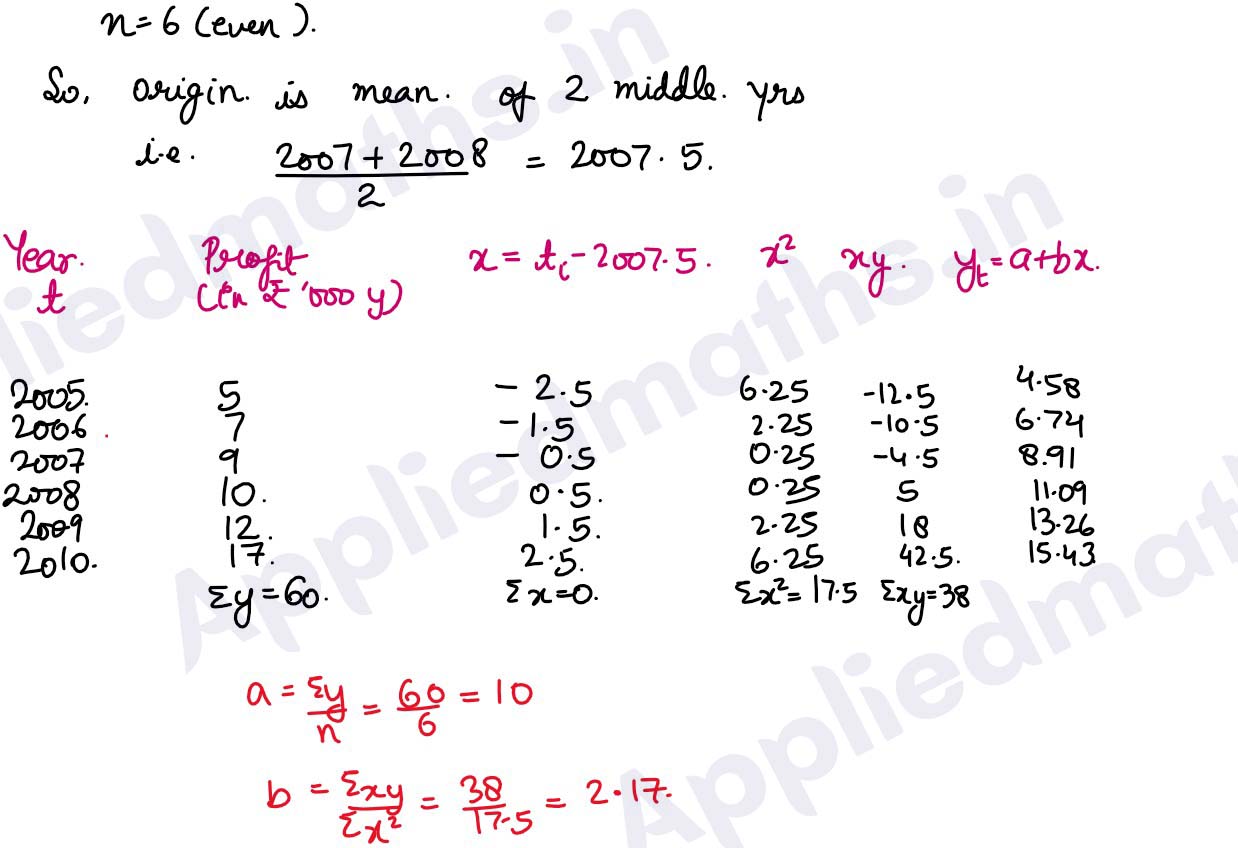 n=6 (even).
So, origin. is mean. of 2 middle. yrs
i.e. (2007+2008)/2 = 2007.5.
Year. t Profit (in ₹ '000 y) x = tᵢ - 2007.5. x² xy. yₜ = a+bx.
2005. 5 - 2.5 6.25 -12.5 4.58
2006 . 7 -1.5 2.25 -10.5 6.74
2007 9 - 0.5 0.25 -4.5 8.91
2008 10. 0.5. 0.25 5 11.09
2009 12. 1.5. 2.25 18 13.26
2010. 17. 2.5. 6.25 42.5. 15.43
Σy = 60. Σx=0. Σx²= 17.5 Σxy=38
a = Σy/n = 60/6 = 10
b = Σxy/Σx² = 38/17.5 = 2.17.
Appliedmaths.in
Appliedmaths.in
Appliedmaths